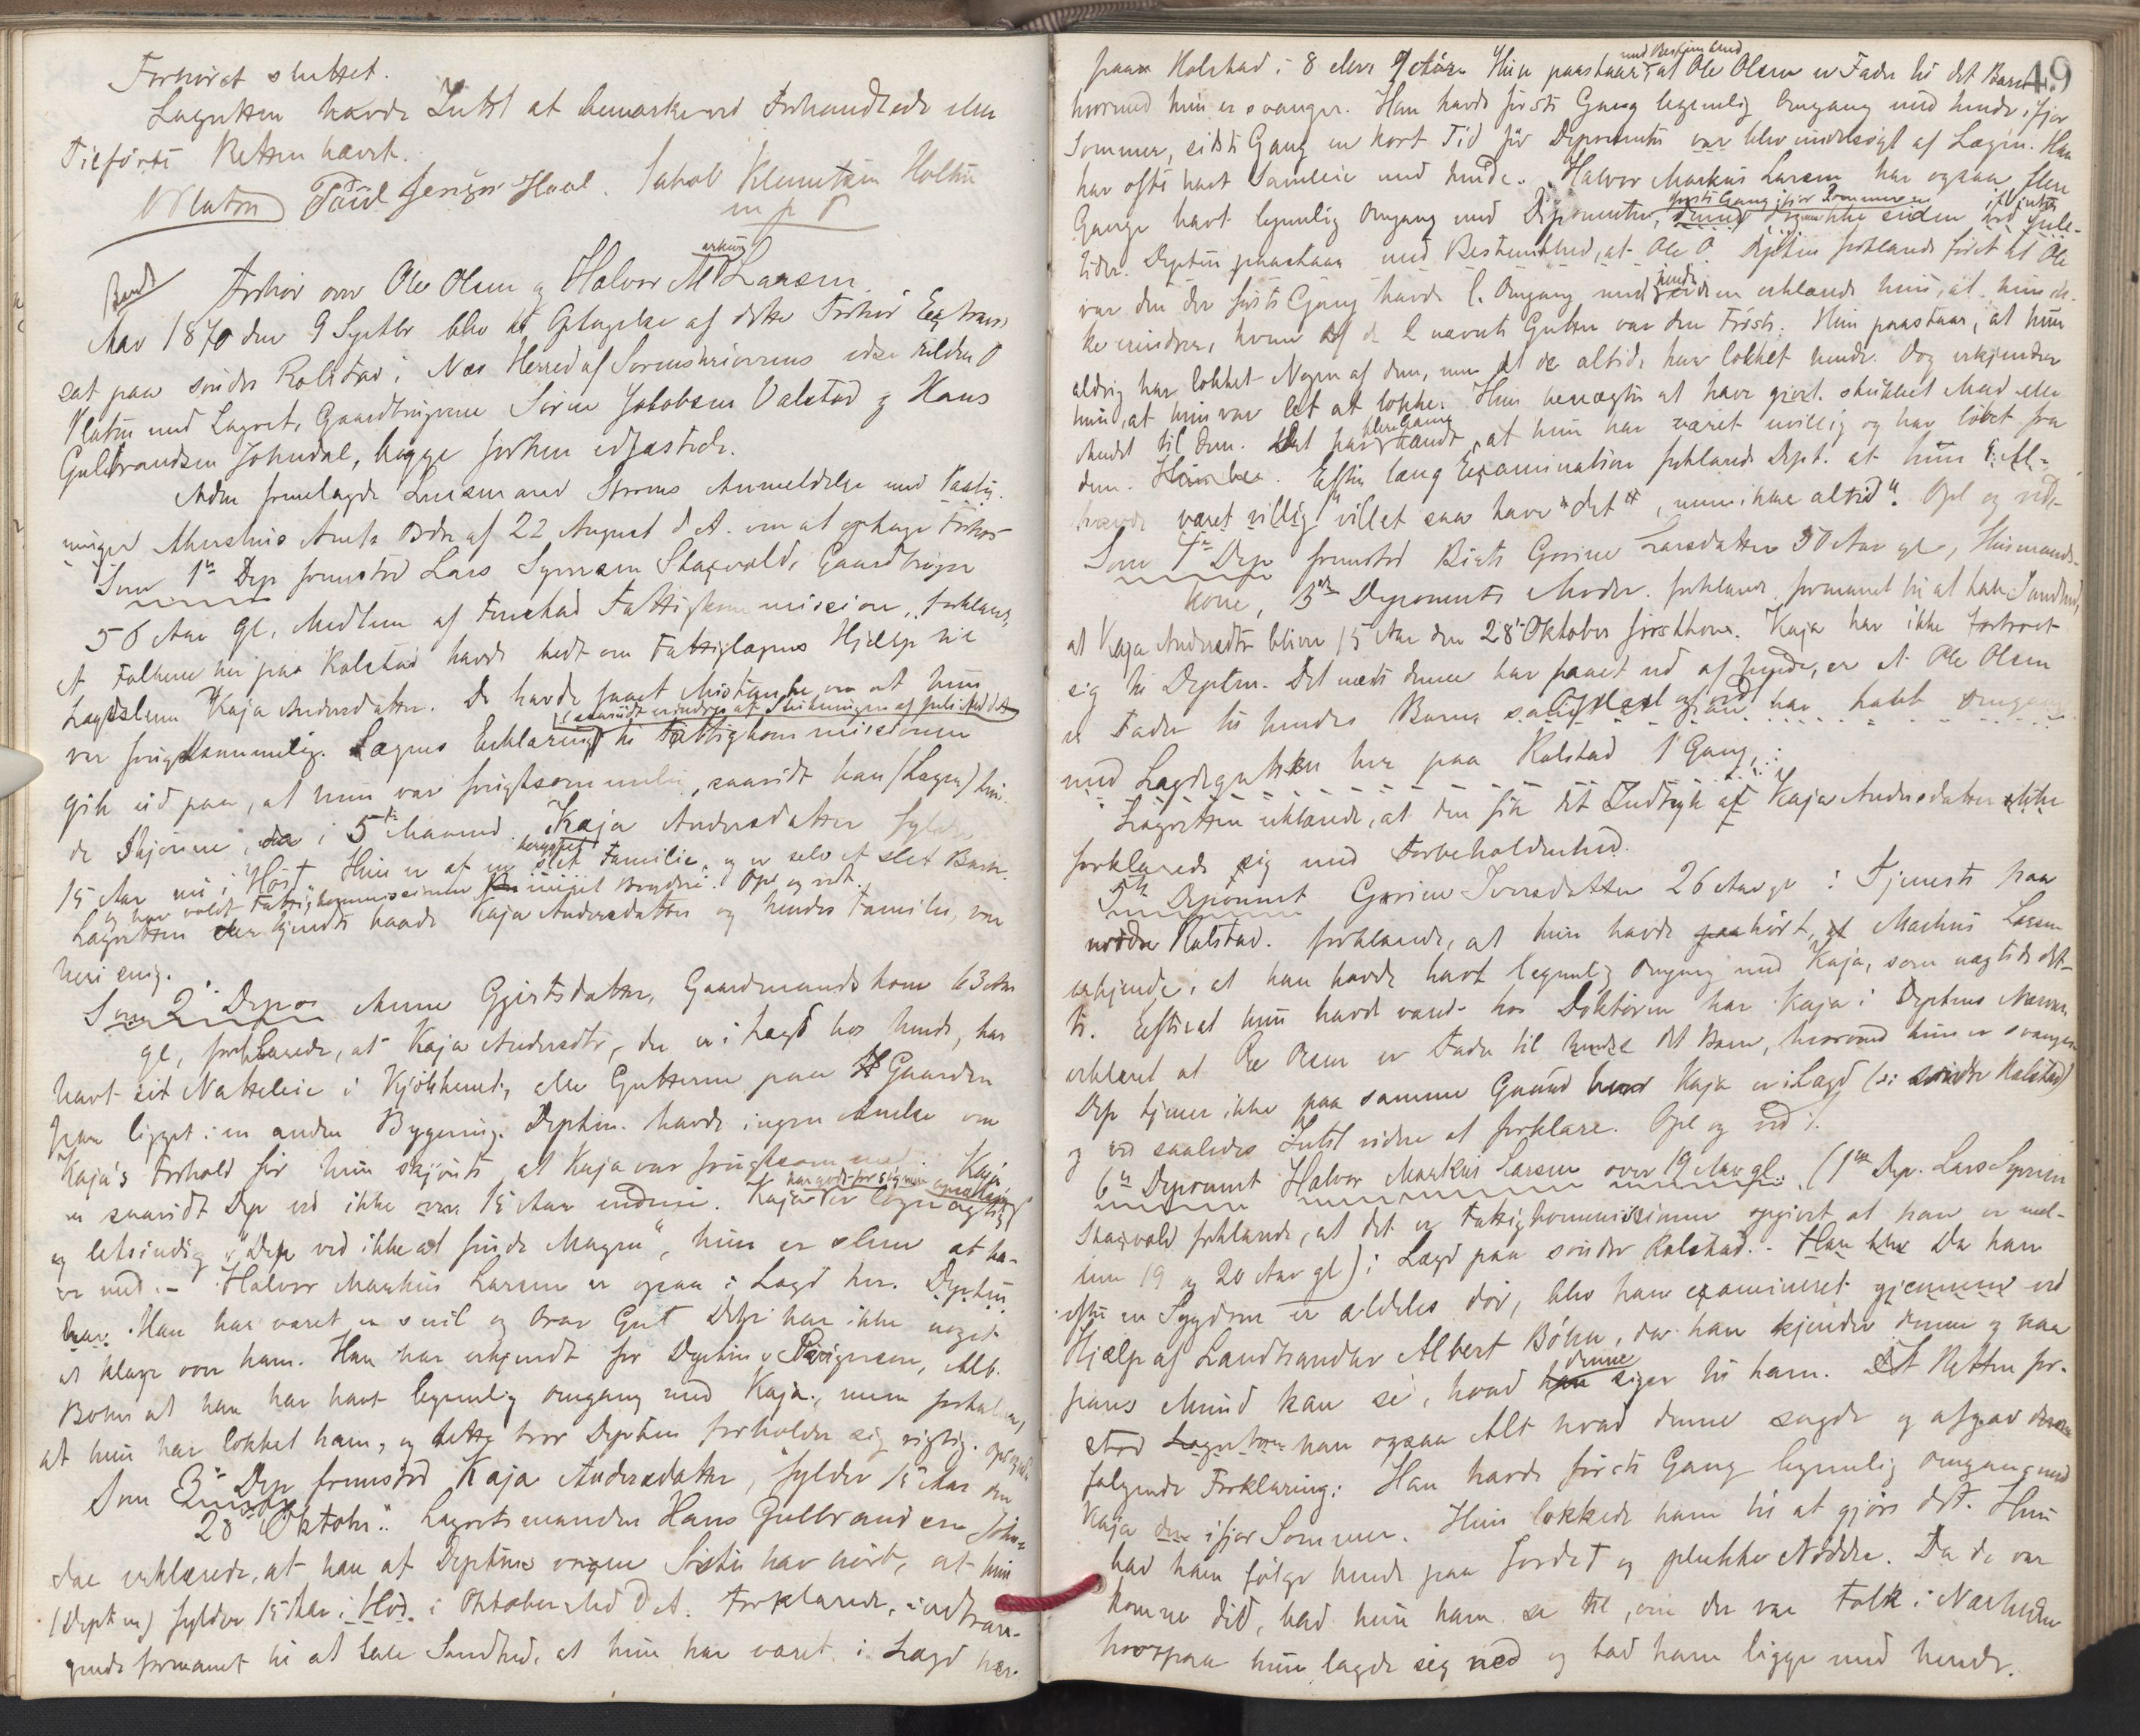 Forhøret sluttet.
Lagretten havde Intet at bemærke ved Forhandlede eller
Tilførte Retten hævet.
Paul Jensen Hoel. Jakob Klemetsen Holter
m p P
Forhør over Ole Olsen og Halvor Markus Larsen.
Aar 1870 den 9 Septbr blev til Optagelse af dette Forhør Extraret
sat paa søndre Ralstad i Næs Herred af Sorenskriverens edsv fuldm
med Lagret, Gaardbrugerne Søren Jakobsen Valstad og Hans
Gulbrandsen Johnsdal, begge forhen edfæstede.
Adm fremlagde Lensmand Anmeldelse med Paateg-
ninger Akershus Amts Ordr af 22 August d A. om at optage Forhør
Som 1ste Dep fremstod Lars Syversen Skogvold, Gaardbruger
56 Aar gl, Medlem af Fattigkommission, forklared,
at Folkene her paa Ralstad havde bedt om Fattiglægens Hjælp til
Lægdslem Kaja Andersdatter. De havde faaet Mistanke om at hun
saavidt erindres af Slutningen af Juli Md d A
var frugtsommelig. Lægens Erklæring til Fattigkommissionen
gik ud paa, at hun var frugtsommelig, saavidt han (Lægen) kun-
de skjønne, da i 5te Maaned. Kaja Andersdatter fylder
15 Aar nu i Høst Hun er af en berygtet slet Familie, og er selv et slet Barn.
og har voldt Fattigkommissionen meget Bryderi. Opl og vedt.
Lagretten der kjendte baade Kaja Andersdatter og hendes Familie, var
heri enig.
Som 2 Depos Anne Gjertsdatter, Gaardmandskone 63 Aar
gl, forklarede, at Kaja Andersdtr, der er i Lægd hos hende, har
havt sit Natteleie i Kjøkkenet, eller Gutterne paa Gaarden
have ligget i en anden Bygning. Deptin. havde ingen Anelse om
Kaja's Forhold før hun skjønte at Kaja var frugtsommelig. Kaja
er saavidt Dep ved ikke over 15 Aar endnu. Kaja er løgnagtig
og letsindig, "Dep ved ikke at finde Magen", hun er slem at ha-
ve med. - Halvor Markus Larsen er ogsaa i Lægd her. Deptin
har. Han har været en snil og brav Gut Dep har ikke noget
at klage over ham. Han har erkjendt for Deptin, Alb.
Bøhn at han har havt legemlig Omgang med Kaja, men forklarer,
at hun har lokket ham, og dette tror Deptin forholder sig rigtig. Opl og vedt
Som 3die Dep fremstod Kaja Andersdatter, fylder 15 Aar den
28 Oktober. Lagrettsmanden Hans Gulbrandsen Johns-
dal erklærede, at han af Deptins voxne Søster har hørt, at hun
(Deptin) fylder 15 Aar i Høst i Oktober Md d A. Forklarede, indtræn-
gende formanet til at tale Sandhed, at hun har været i Lægd her
49
paa Ralstad i 8 eller 9 Aar. Hun paastaar med Bestemthed at Ole Olsen er Fader til det Barn
hvormed hun er svanger. Han havde første Gang legemlig Omgang med hende ifjor
Sommer, sidste Gang en kort Tid før Deponentin var blev undersøgt af Lægen. Han
har ofte havt Samleie med hende. Halvor Markus Larsen har ogsaa flere
Gange havt legemlig Omgang med Deponentin, første Gang ifjor Sommer ikke siden ved Jule-
tider. Deptin paastaar med Bestemthed, at Ole O. Deptin forklarede først at Ole
var den der første Gang havde l. Omgang med hende siden erklærede hun, at hun ik-
ke erindrer, hvem af de 2 nævnte Gutter var den Første. Hun paastaar, at hun
aldrig har lokket Nogen af dem, men at de altid har lokket hende. Dog erkjender
hun, at hun var let at lokke. Hun benægter at have givet stukket Mad eller
Andet til dem. Det har flere Gange hændt, at hun har været uvillig og har løbet fra
dem. Efter lang Examination forklarede Dept. at hun i Al-
været villig villet saa have "det", men ikke altid". Opl og vedt
Som 4de Dep fremstod Larsdatter 50 Aar gl, Husmands-
kone, 3die Deponents Moder. forklarede formanet til at tale Sandhed,
at Kaja Andersdtr bliver 15 Aar den 28 Oktober førstkom. Kaja har ikke betroet
sig til Deptin. Det mest denne har faaet ud af hende, er at Ole Olsen
er Fader til hendes Barn samt at han har havt Omgang
med Lægdsgutten her paa Ralstad 1 Gang,
Lagretten erklærede, at den fik det Indtryk at Kaja Andersdatter ikke
forklarede sig med Forbeholdenhed.
5te Deponent Gorine Iversdatter 26 Aar gl i Tjeneste paa
nordre Ralstad. forklarede, at hun havde hørt, at Markus Larsen
erkjende, at han havde havt legemlig Omgang med Kaja, som nægtede det-
te. Efterat hun havde været hos Doktoren har Kaja i Deptins Nærvær
erklæret at Ole Olsen er Fader til det Barn, hvorved hun er svanger.
Dep tjener ikke paa samme Gaard hvor Kaja er i Lægd (ɔ: søndre Ralstad)
og ved saaledes Intet videre at forklare. Opl og ved t.
6te Deponent Halvor Markus Larsen over 19 Aar gl. (1ste Dep. Lars Syversen
Skogvold forklarede, at det er Fattigkommissionen opgivet at han er mel-
lem 19 og 20 Aar gl) i Lægd paa søndre Ralstad. - Han blev Da han
efter en Sygdom er aldeles døv, blev han examineret gjennem ved
Hjælp af Landhandler Albert Bøhn, da han kjender denne og paa
hans Mund kan se, hvad denne siger til ham. At Retten for-
stod han ogsaa Alt hvad denne sagde og afgav
følgende Forklaring: Han havde første Gang legemlig Omgang med
Kaja ifjor Sommer. Hun lokkede ham til at gjøre det. Hun
bad ham følge hende paa Jordet og plukke Nødder. Da de var
komne did, bad hun ham se til, om der var Folk i Nærheden
hvorpaa hun lagde sig ned og bad ham ligge med hende.